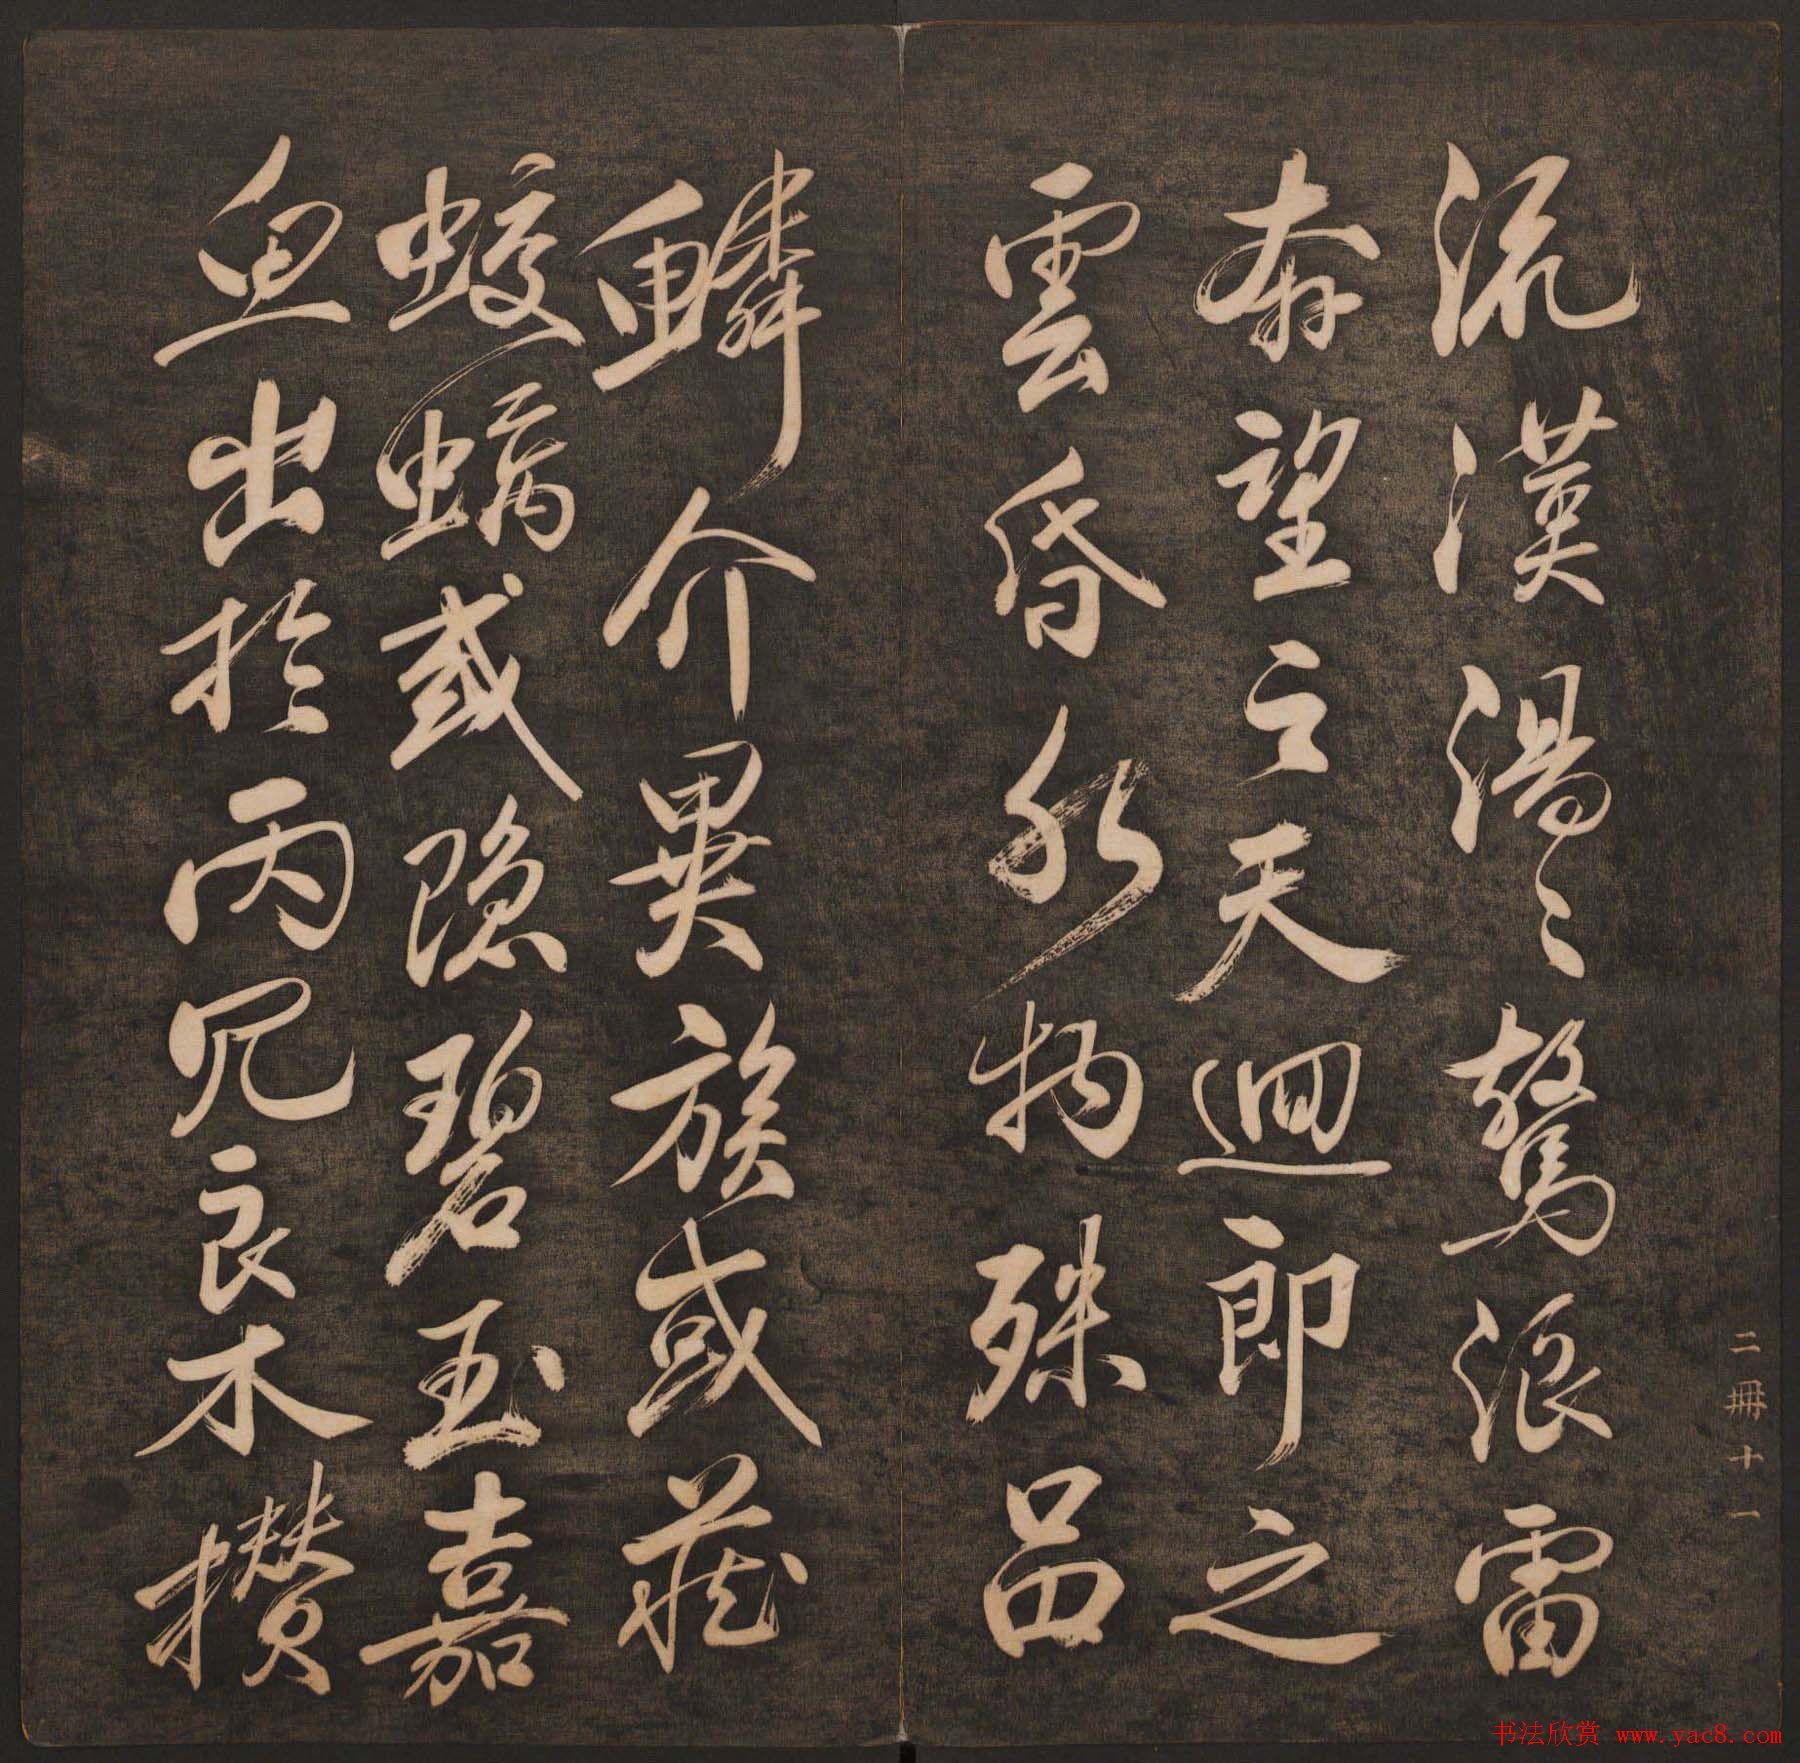 流漢湯〻驚浪雷
奔望之天迴即之
雲昏水物殊品
鱗介異族或藏
蛟螭或隱碧玉嘉
魚出於丙穴良木攢
二冊十一
书法欣赏 www.yac8.com